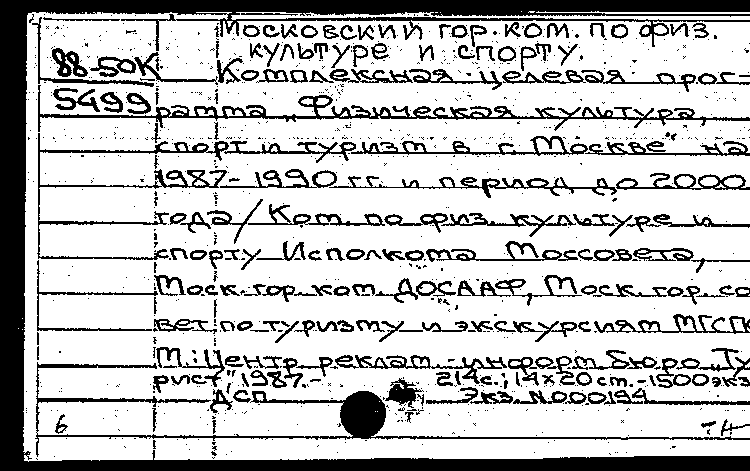 Московский гор. ком. по физ.
культуре и спорту.
88-50К
Комплексная целевая прог-
5499
рамма „Физическая культура,
спорт и туризм в г. Москве" на
1987-1990 гг. и период до 2000
года / Ком. по физ. культуре и
спорту Исполкома Моссовета,
Моск. гор. ком. ДОСААФ, Моск. гор. со
вет по туризму и экскурсиям МГСПС
М.: Центр реклам.-информ. бюро „Ту
рист", 1987.- 214с.; 14х20 cm.-1500экз
ДСП Экз. N000194
6